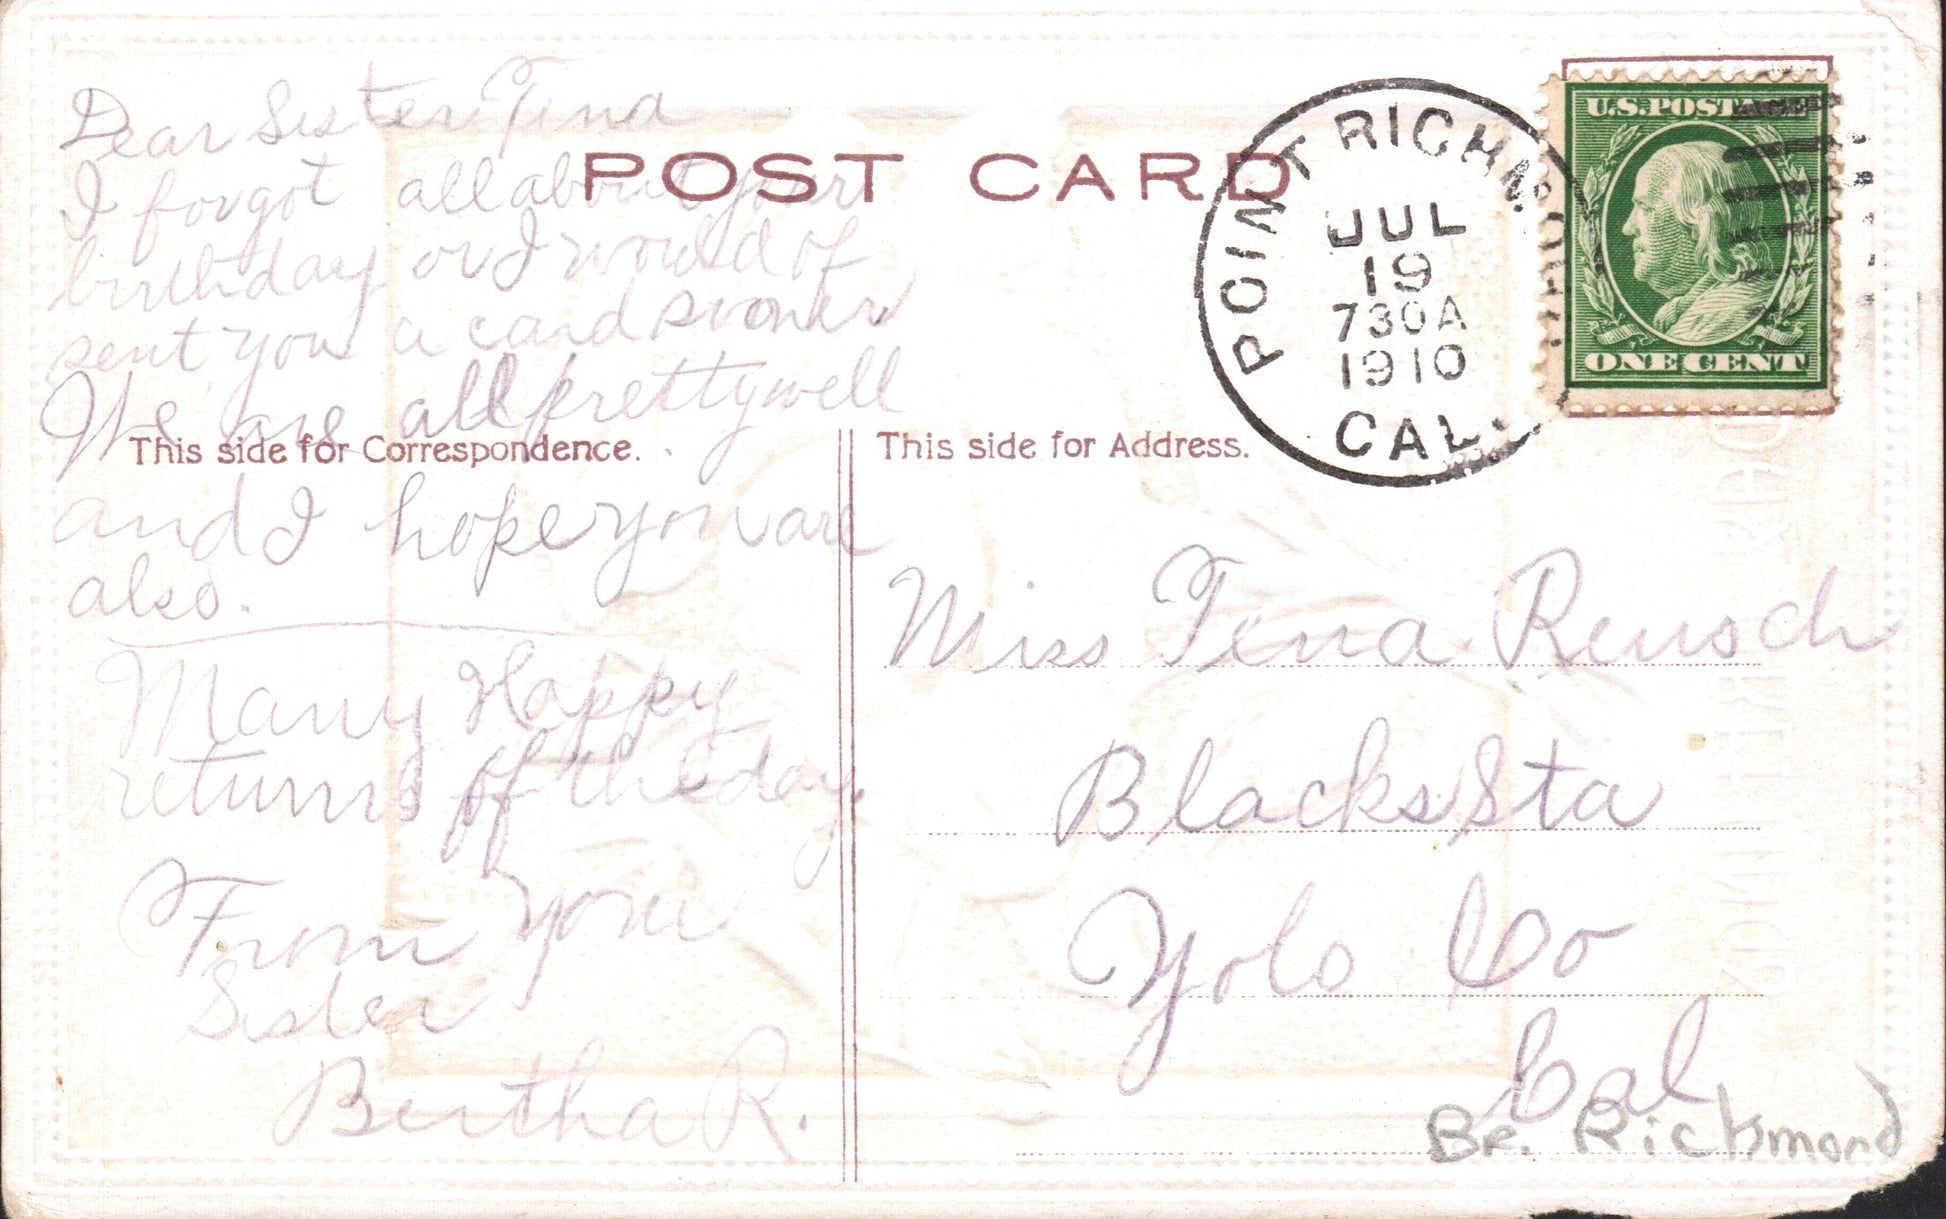 Dear Sister Tena
I forgot all about your
birthday or I would of
sent you a card sooner
We are all pretty well
and I hope you are
also.
Many Happy
returns of the day.
From your
Sister
Bertha R.
POST CARD
This side for Correspondence.
This side for Address.
POINT RICHMOND
JUL
19
730A
1910
CAL.
U.S. POSTAGE
ONE CENT
Miss Tena Reusch
Blacks Sta
Yolo Co
Cal
Br. Richmond